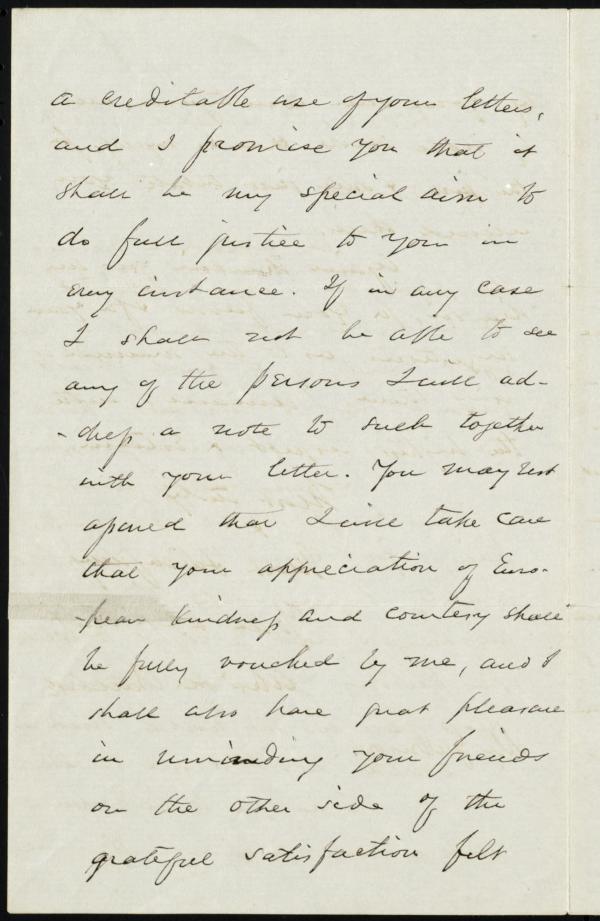 a creditable use of your letters,
and I promise you that it
shall be my special aim to
do full justice to you in
every instance. If in any case
I shall not be able to see
any of the persons I will ad-
-dress a note to such together
with your letter. You may rest
assured that I will take care
that your appreciation of Euro-
-pean kindness and courtesy shall
be fully vouched by me, and I
shall also have great pleasure
in reminding your friends
on the other side of the
grateful satisfaction felt